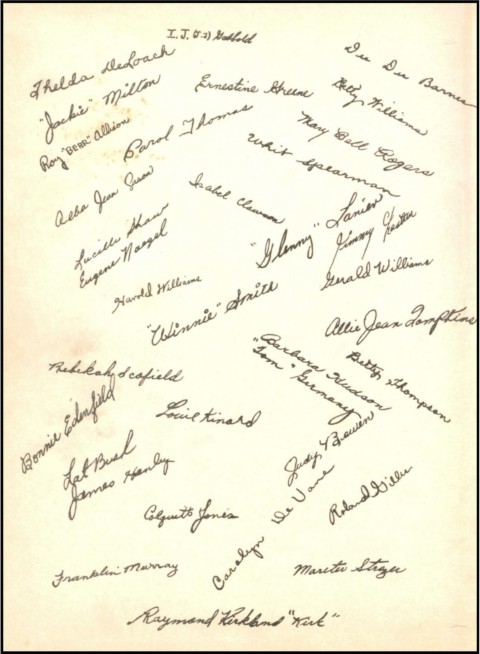 I. J.
Dee Dee Barnes
Thelda DeLoach
"Jackie" Milton
Ernestine Greene
Betty Williams
Roy "BEBE" Allison
Carol Thomas
May Bell Rogers
Whit Spearman
Alba Jean
Isabel Clewson
Lucille Shaw
Eugene Naegel
"Glenny" Lanier
Jimmy
Harold Williams
Gerald Williams
"Winnie" Smith
Allie Jean Tompkins
Rebekah Scofield
Barbara Hudson
"Tom" Germany
Betty Thompson
Bonnie Edenfield
Louie Kinard
Judy Bowen
Lat Bush
James Henly
Roland
Colquitt Jones
Carolyn De Vane
Franklin Murray
Raymond Kirkland "Kirk"